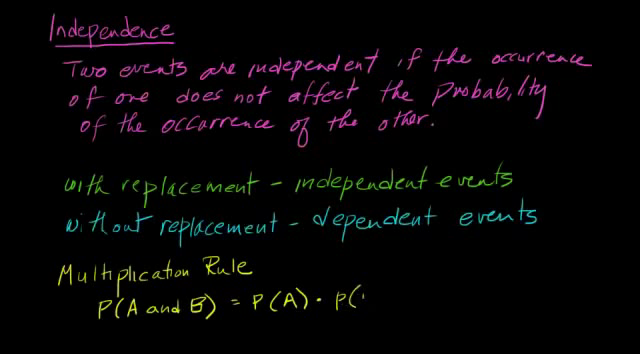 Independence
Two events are independent if the occurrence
of one does not affect the probability
of the occurrence of the other.
with replacement - independent events
without replacement - dependent events
Multiplication Rule
P(A and B) = P(A) · P(